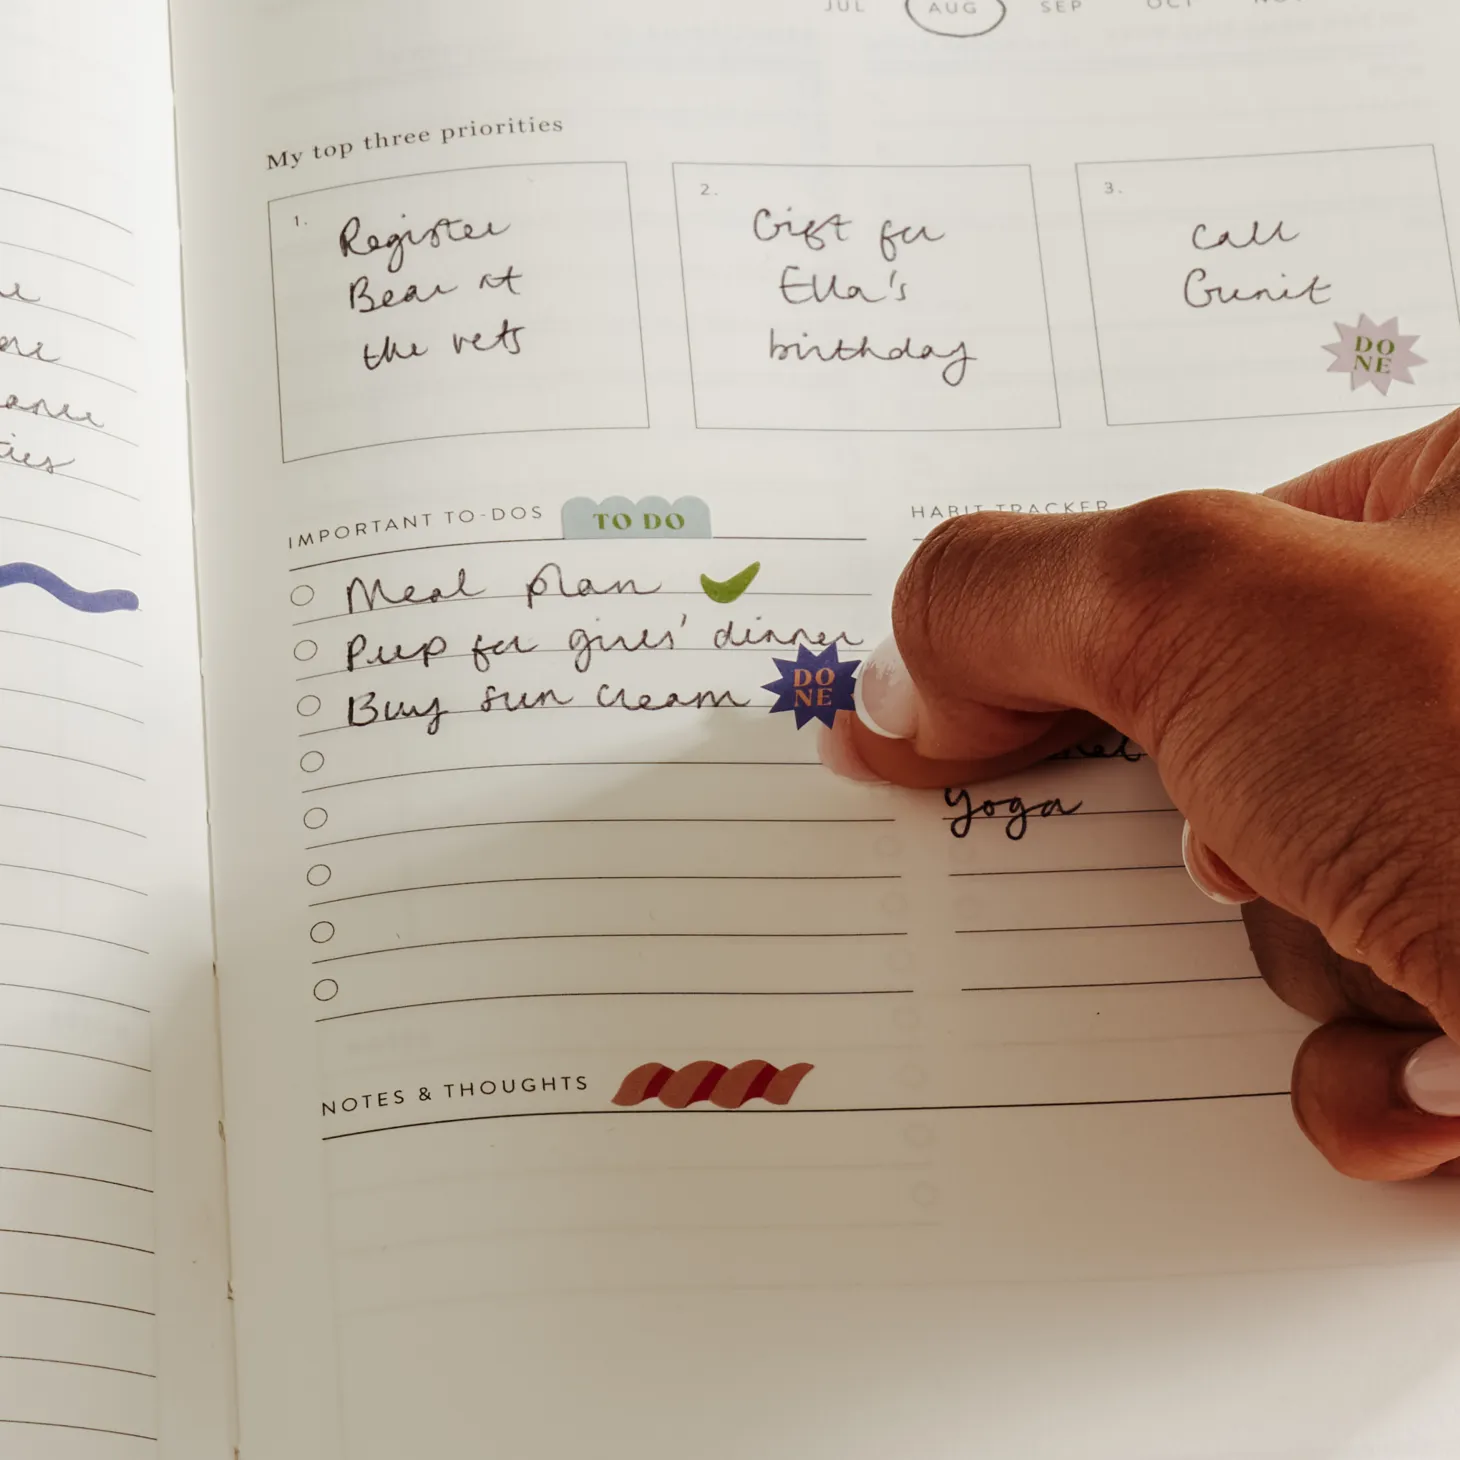 JUL AUG SEP OCT
My top three priorities
1.
Register
Bear at
the vets
2.
Gift for
Ella's
birthday
3.
Call
Gunit
DO
NE
IMPORTANT TO-DOS
TO DO
Meal plan
Prep for girls' dinner
Buy sun cream
DO
NE
HABIT TRACKER
Yoga
NOTES & THOUGHTS